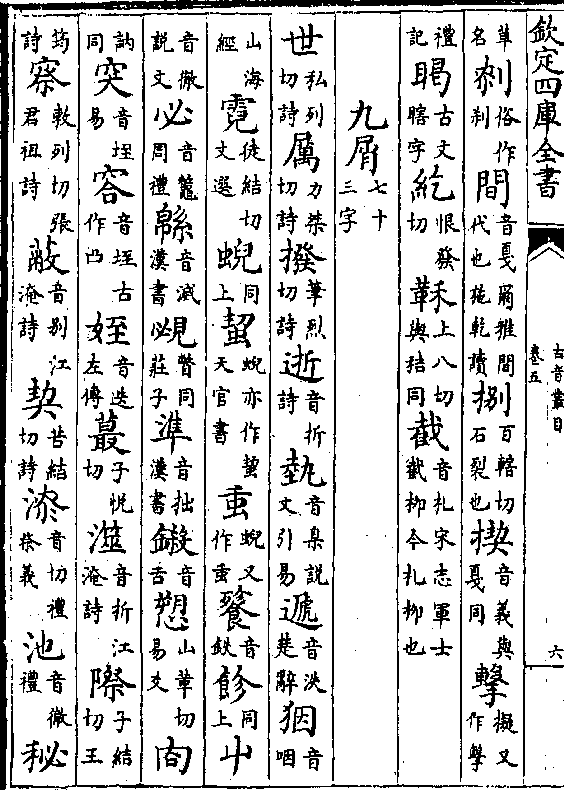 欽定四庫全書
古音叢目
卷五
六
革名刹俗作刹間音戛爾雅間代也施乾讀捌百轄切石裂也揳音義與戛同擊擬又作擊
禮記䁍古文瞎字紇恨發切䅥上八切與秸同截音札宋志軍士截柳今札柳也
九屑七十三字
世私列切詩厲力桀切詩撥筆烈切詩逝音折詩埶音臬說文引易遞音泆楚辭㧢音咽
山海經霓徒結切文選蜺同上蛪蜺亦作蛪天官書䖝蜺又作䖝餮音鉄飻同上屮
音徹說文必音鷩周禮緜音滅漢書覕瞥同莊子準音拙漢書鏺音舌愬山革切易文向
訥同突音垤易容音垤古作凸姪音迭左傳蕞子悅切滋音折江淹詩際子結切王
筠詩察敕列切張君祖詩蔽音別江淹詩契苦結切詩漆音切禮祭義池音徹禮秘